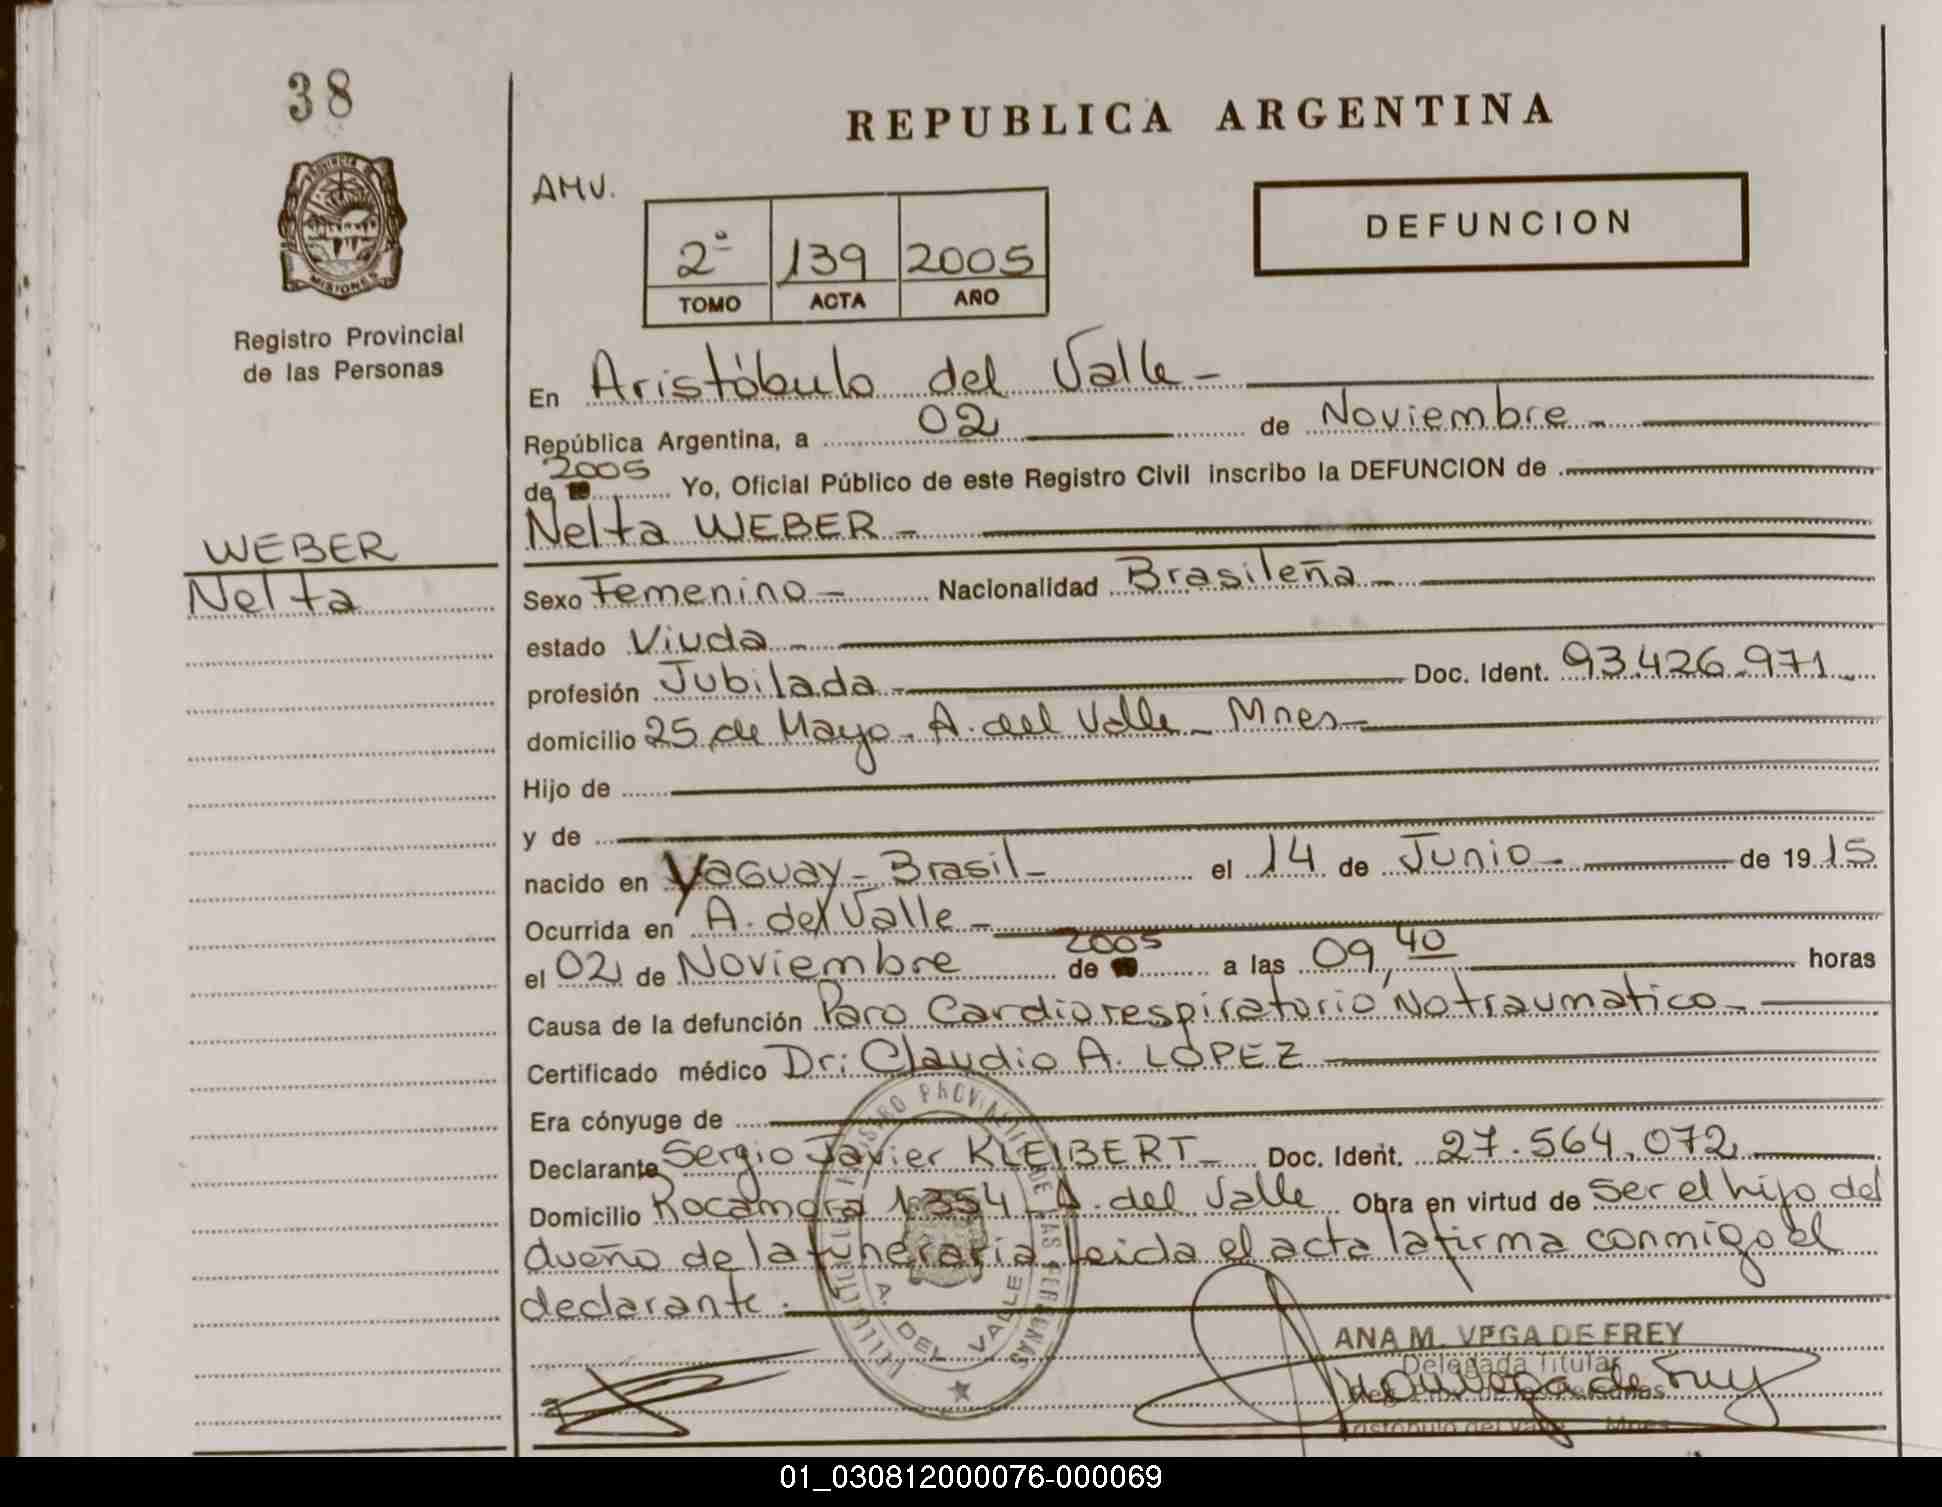 38
REPUBLICA ARGENTINA
PROVINCIA DE
MISIONES
Registro Provincial
de las Personas
AMV.
2ª 139 2005
TOMO ACTA AÑO
DEFUNCION
En Aristóbulo del Valle -
República Argentina, a 02 de Noviembre -
2005
de Yo, Oficial Público de este Registro Civil inscribo la DEFUNCION de
WEBER
Nelta
Nelta WEBER -
Sexo Femenino - Nacionalidad Brasileña -
estado Viuda -
profesión Jubilada - Doc. Ident. 93.426.971 -
domicilio 25 de Mayo - A. del Valle - Mnes -
Hijo de
y de
nacido en Yaguay - Brasil - el 14 de Junio - de 1915
Ocurrida en A. del Valle -
el 02 de Noviembre de 2005 a las 09,40 horas
Causa de la defunción Paro Cardiorespiratorio No traumatico -
Certificado médico Dr: Claudio A. LOPEZ
Era cónyuge de
Declarante Sergio Javier KLEIBERT - Doc. Ident. 27.564.072
Domicilio Rocamora 1354 - A. del Valle Obra en virtud de ser el hijo del
dueño de la funeraria leida el acta la firma conmigo el
declarante.
REGISTRO PROVINCIAL DE LAS PERSONAS
A. DEL VALLE
ANA M. VEGA DE FREY
Delegada Titular
Aristóbulo del Valle Mnes
01_030812000076-000069